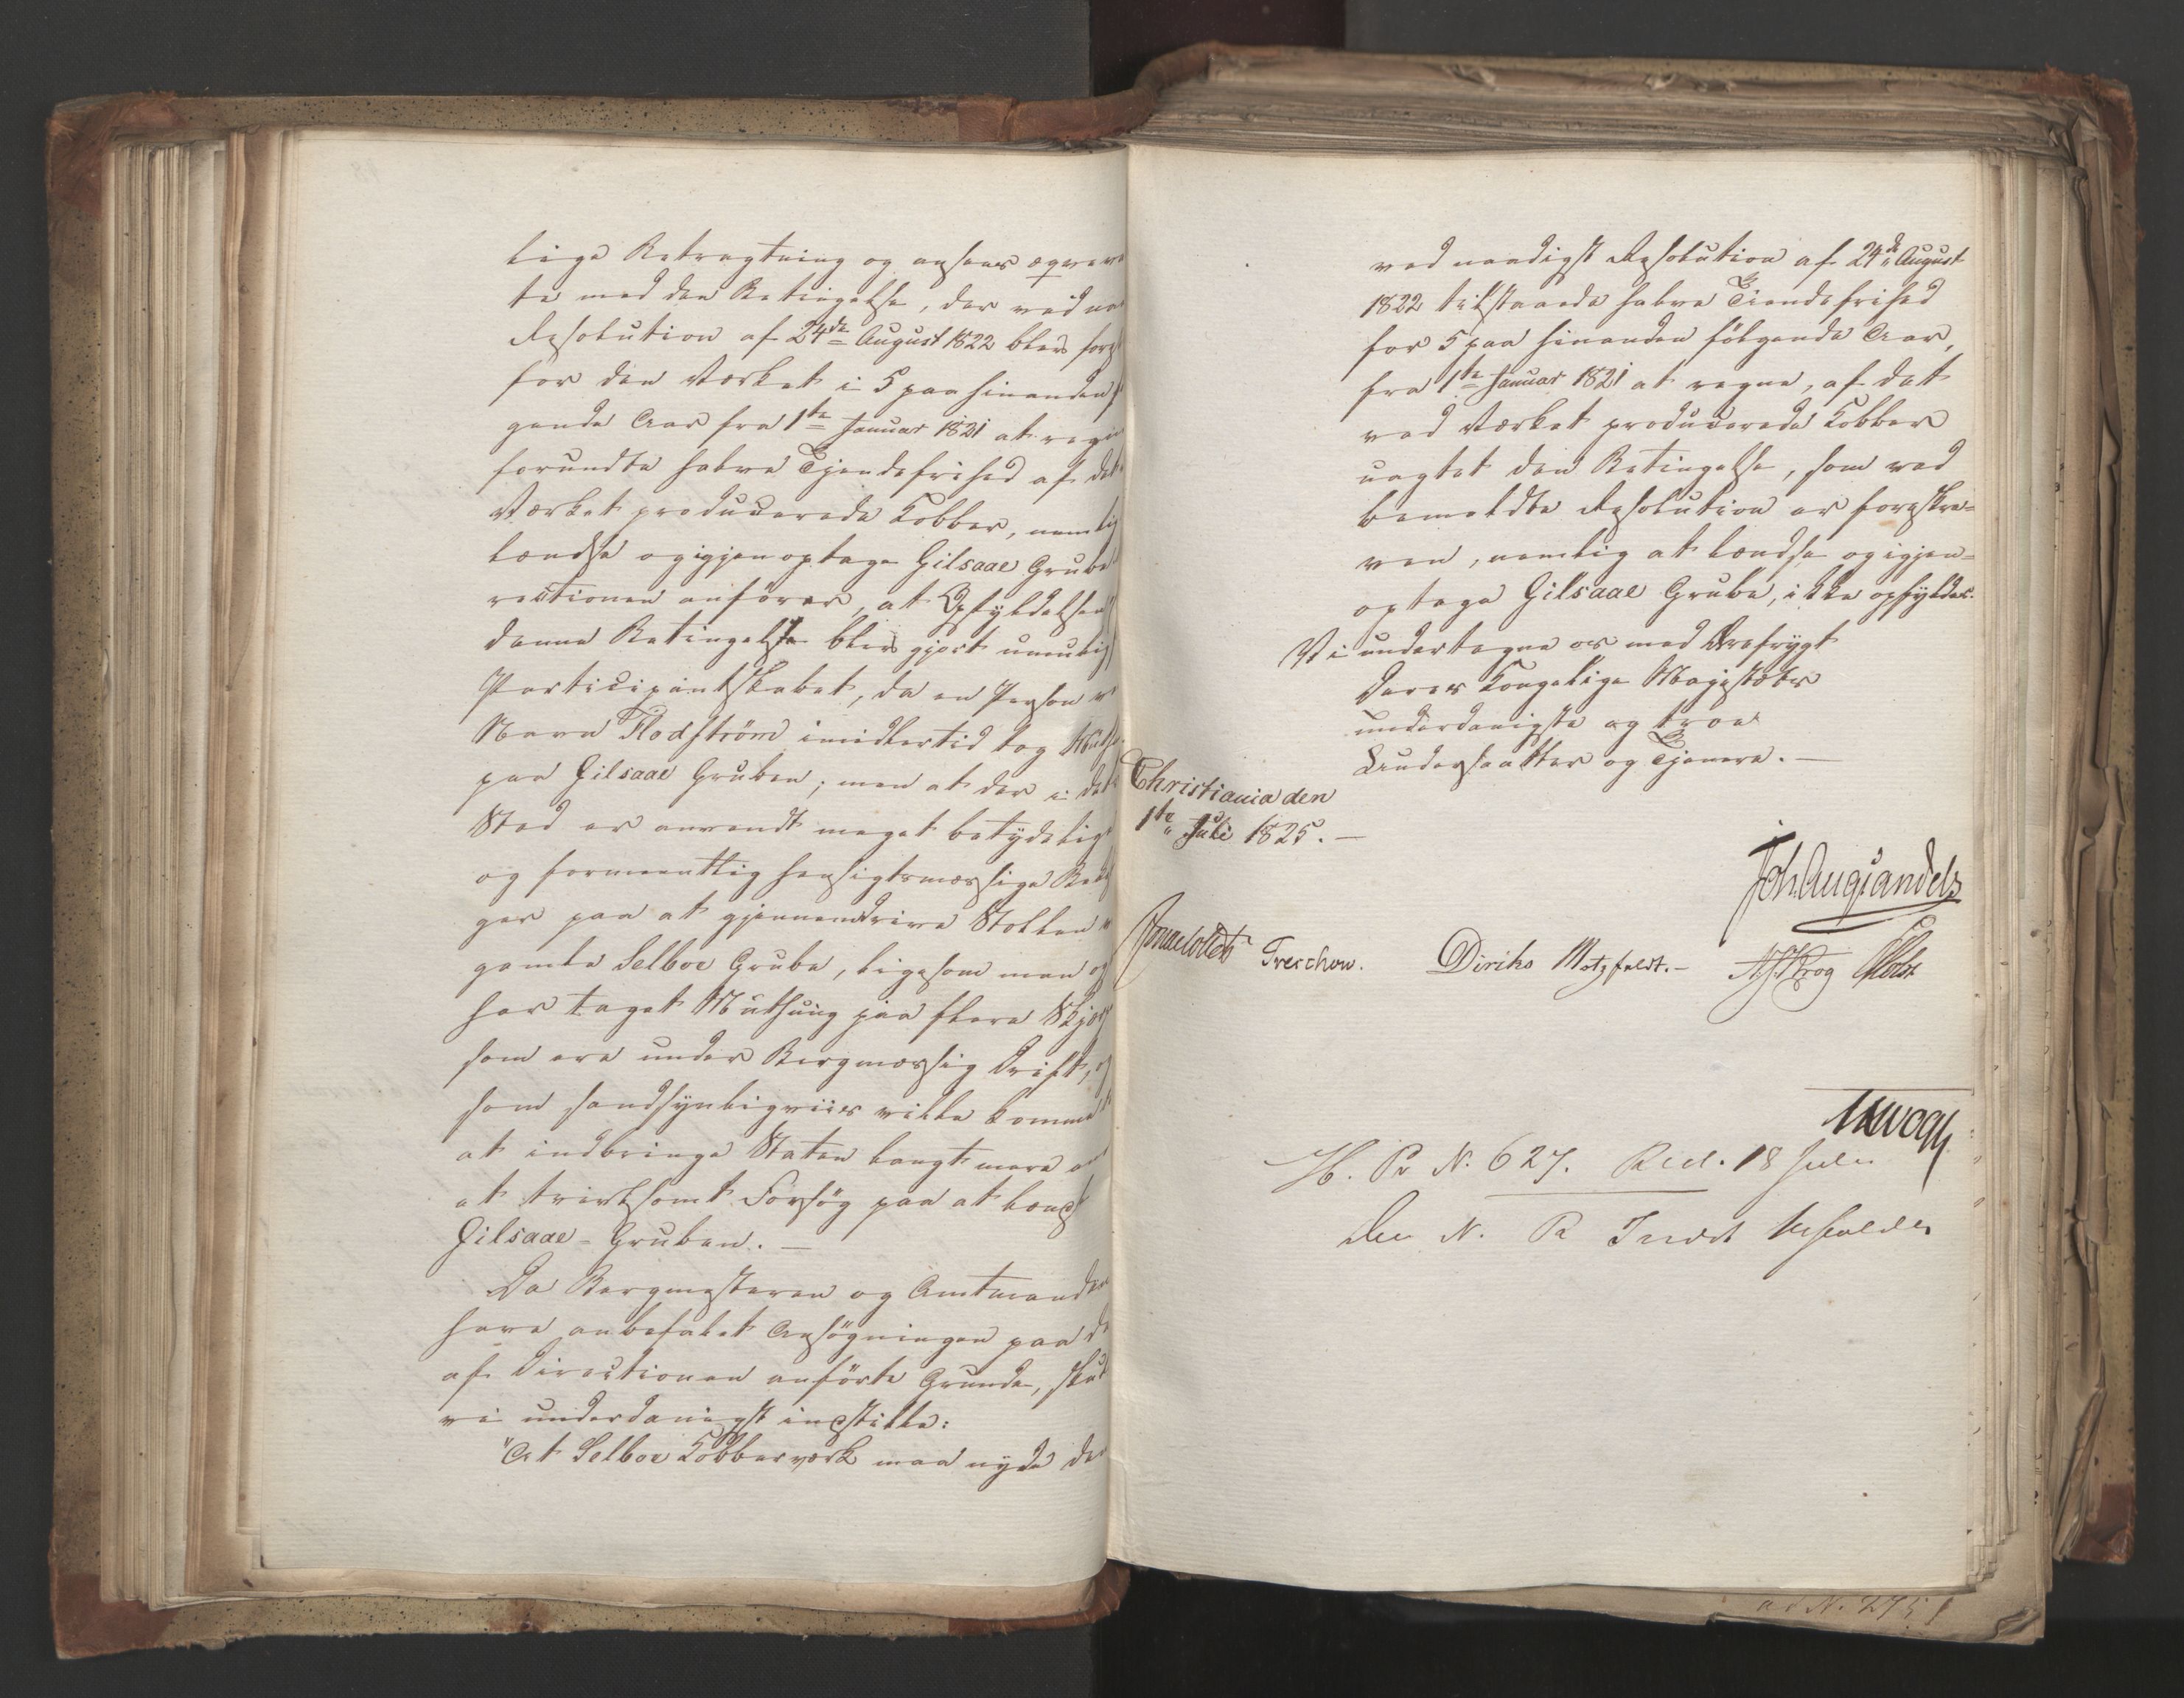 lige Betragtning og ansees æqviva
te med den Betingelse, der ved na
Resolution af 24de August 1822 blev fores
for den Værket i 5 paa hinanden f
gende Aar fra 1te Januar 1821 at regn
forundte halve Tjendefrihed af det
Værket producerede Kobber, nemlig
lændse og igjenoptage Gilsaae Grube
rectionen anfører, at Opfyldelsen
denne Betingelse blev gjort umulig
Participantskabet, da en Person v
Navn Flodström imidlertid tog Muth
paa Gilsaae Gruben; men at der i det
Sted er anvendt meget betydelig
og formeentlig hensigtsmæssige Bek
ger paa at gjennemdrive Stollen
gamle Selboe Grube, ligesom man og
har taget Muthung paa flere Skjær
som ere under Bergmæssig Drift, og
som sandsynligviis ville komme
at indbringe Staten langt mere
et tvivlsomt Forsøg paa at lænds
Gilsaae-Gruben. —
Da Bergmesteren og Amtmanden
have anbefalet Ansøgningen paa de
af Directionen anførte Grunde, skul
vi underdanigst indstille:
"At Selboe Kobberværk maa nyde de
ved naadigst Resolution af 24de August
1822 tilstaaede halve Tiendefrihed
for 5 paa hinanden følgende Aar,
fra 1te Januar 1821 at regne, af det
ved Værket producerede Kobber
uagtet den Betingelse, som ved
bemeldte Resolution er foreskre=
ven, nemlig at lændse og igjen=
optage Gilsaae Grube, ikke opfyldes.
Vi undertegne os med Ærefrygt
Deres Kongelige Majestæts
underdanigste og troe
Undersaatter og Tjenere. —
Christiania den
1te Juli 1825. —
Joh. Aug. Sandels
Treschow. Diriks Motzfeldt. — Krog Holst
H. Pr N. 627. Red. 18 Juli
Den N. R Indst bifaldes
ad N. 2751